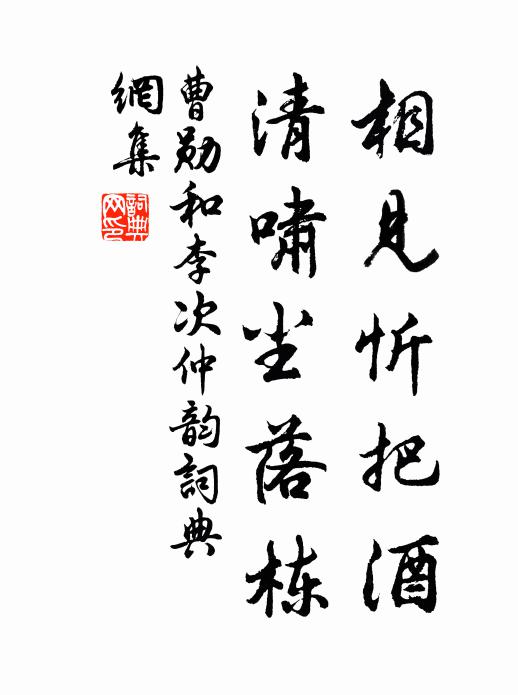 相見忻把酒
清嘯坐落棟
曹勛和李次仲韵詞典
網集
詞典網印